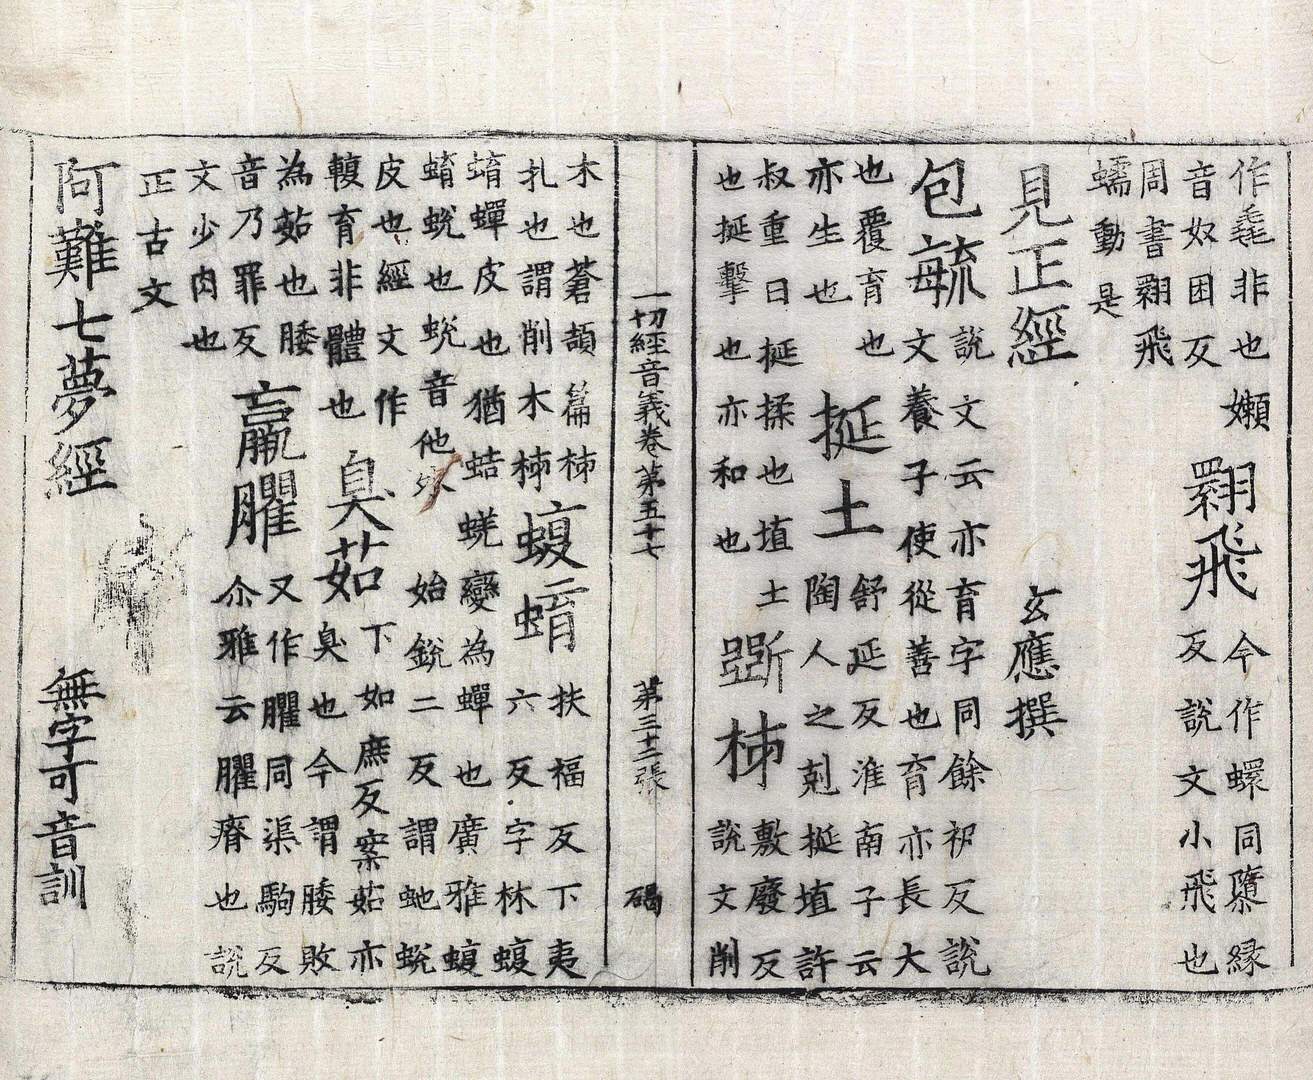 作毳非也嬾
音奴困反
翾飛
今作螺同隳縁
反説文小飛也
周書翾飛
蠕動是
見正經 玄應撰
包毓
説文云亦育字同餘祤反説
文養子使從善也育亦長大
也覆育也
亦生也
挻土
舒延反淮南子云
陶人之剋挻埴許
叔重曰挻揉也埴土
也挻擊也亦和也
斵柹
敷廢反
説文削
一切經音義卷第五十七 第三十二張 碣
木也蒼頡篇柹
扎也謂削木柹
蝮蜟
扶福反下夷
六反字林蝮
蜟蟬皮也猶蛣蜣變為蟬也廣雅蝮
蜟蛻也蛻音他外始銳二反謂虵蛻
皮也經文作
育非體也
臭茹
下如庶反案茹亦
臭也今謂腇敗
為茹也腇
音乃罪反
羸臞
又作臞同渠駒反
尒雅云臞瘠也説
文少肉也
正古文
阿難七夢經 無字可音訓